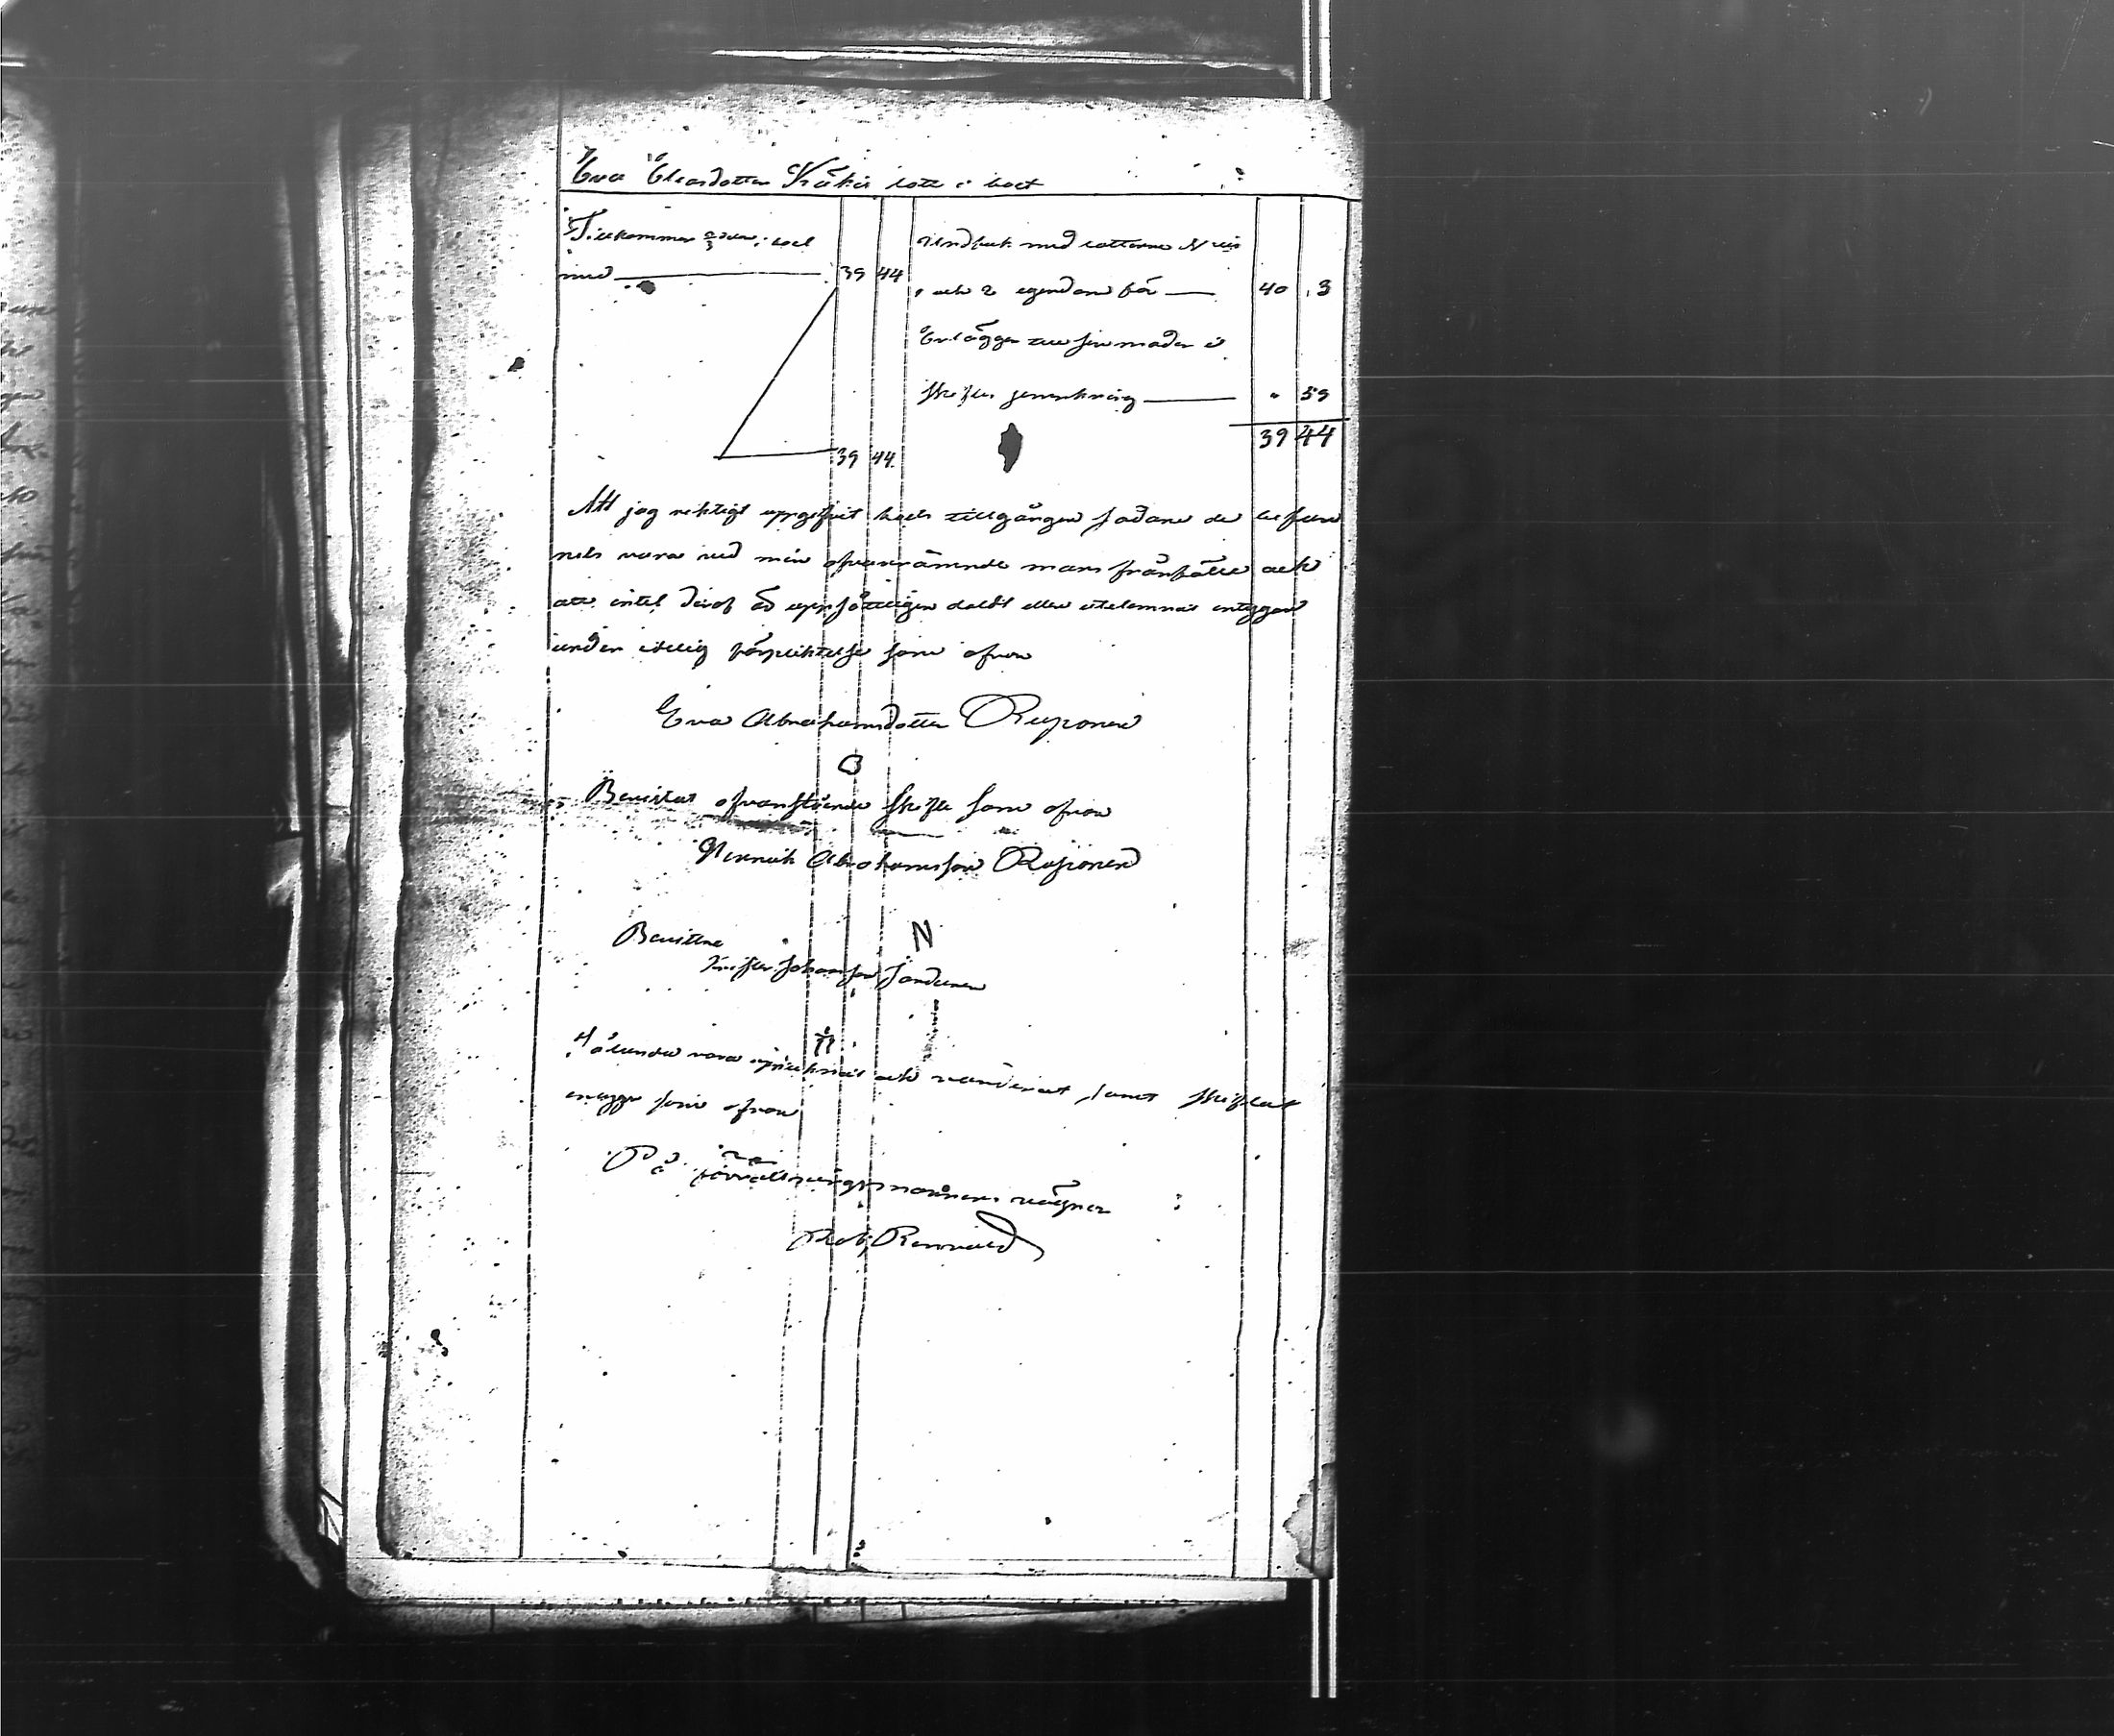 Eva Eliasdotter Kräkis lott i boet
Tillkommer 2/3 delar i boet
med 39 44
Undfick med lotterne N
1 och 2 egendom för 40 .3
Erlägger till sin moder i
skiftes jemnkning " 59
39 44
39 44
Att jag riktigt uppgifvit boets tillgångar sådane de befun
nits vara vid min ofvannämnde mans frånfälle och
att intet deraf är uppsåtligen doldt eller utelemnat intygar
under edelig förpliktelse som ofvan
Eva Abrahamsdotter Reponen
Bevistat ofvanstående skifte som ofvan
Henrick Abrahamsson Reponen
Bevittna N
Johansson
Sålunda vara uptecknat och vänderat samt skiftat
intygar som ofvan
På förrättningsmännens vägnar